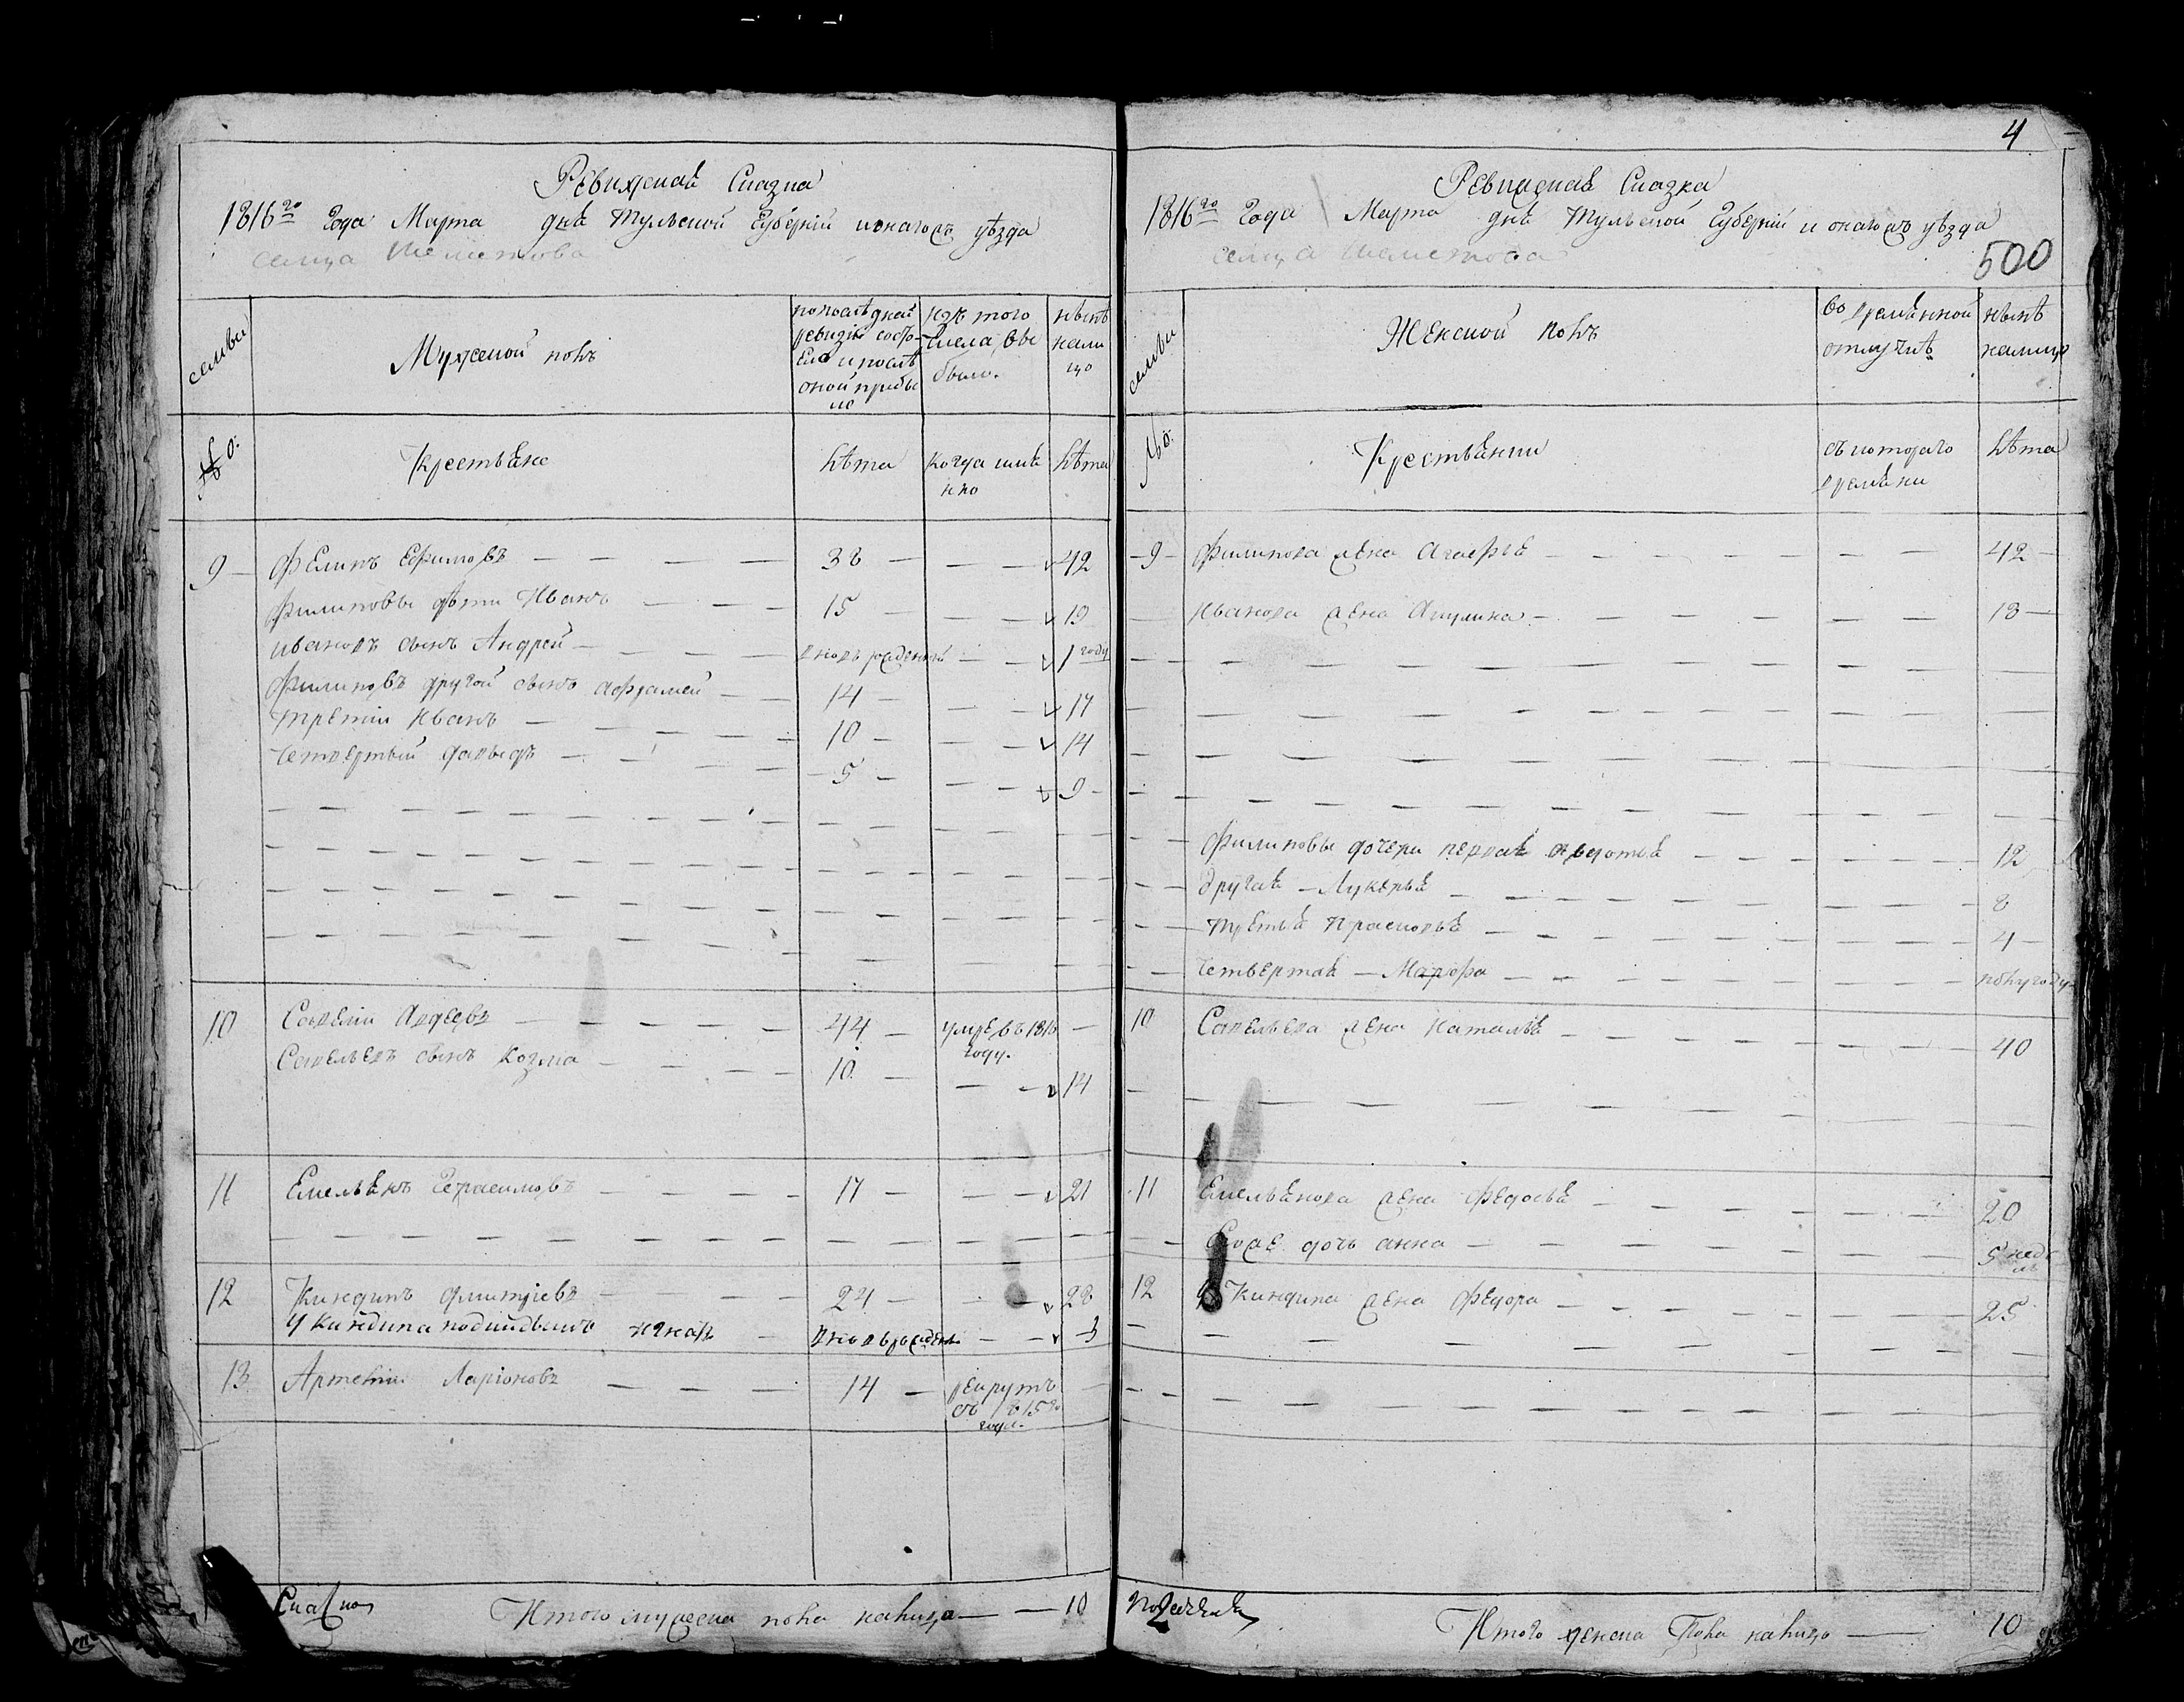 Ревизская Сказка
1816го Года Марта дня Тульской Губернии уезда
селца
семьи
Мужеской полъ
по последней ревизии состояло и после оной прибыло
изъ того числа выбыло.
ныне на лицо
№о:
Крестьяне
Лѣта
Когда имянно
Лѣта
9 Фелипъ Ефимовъ 38 42
Филиповы дѣти Иванъ 15 19
Ивановъ сынъ Андрей вновь рожденный 1 году
Филиповъ другой сынъ 14 17
Третiи Иванъ 10 14
Четвертый Давыдъ 5 9
10 Савелiи Авдеевъ 44 умре въ 1816 году.
Савельевъ сынъ Козма 10 14
11 Емельянъ Герасимовъ 17 21
12 Киндинъ Дмитрiевъ 24 28
У Киндина вновь рожденъ 3
13 Артемiи Ларiоновъ 14 рекрутъ въ 1815го годе.
Итого мужеска пола налицо 10
4
Ревизская Сказка
1816го Года Марта дня Тульской Губернии уезда
селца
500
семьи
Женской полъ
во временной отлучкѣ
нынѣ налицо
№о:
Крестьянки
съ котораго времяни
Лѣта
9 Филипова жена Агафья 42
Иванова жена Акулина 18
Филиповы дочери первая Авдотья 12
Другая Лукерья 8
Третья Прасковья 4
Четвертая Марфа полугоду
10 Савельева жена Наталья 40
11 Емельянова жена Федосья 20
дочь Анна 5 недѣль
12 Киндина жена Федора 25
Итого женска Пола налицо 10